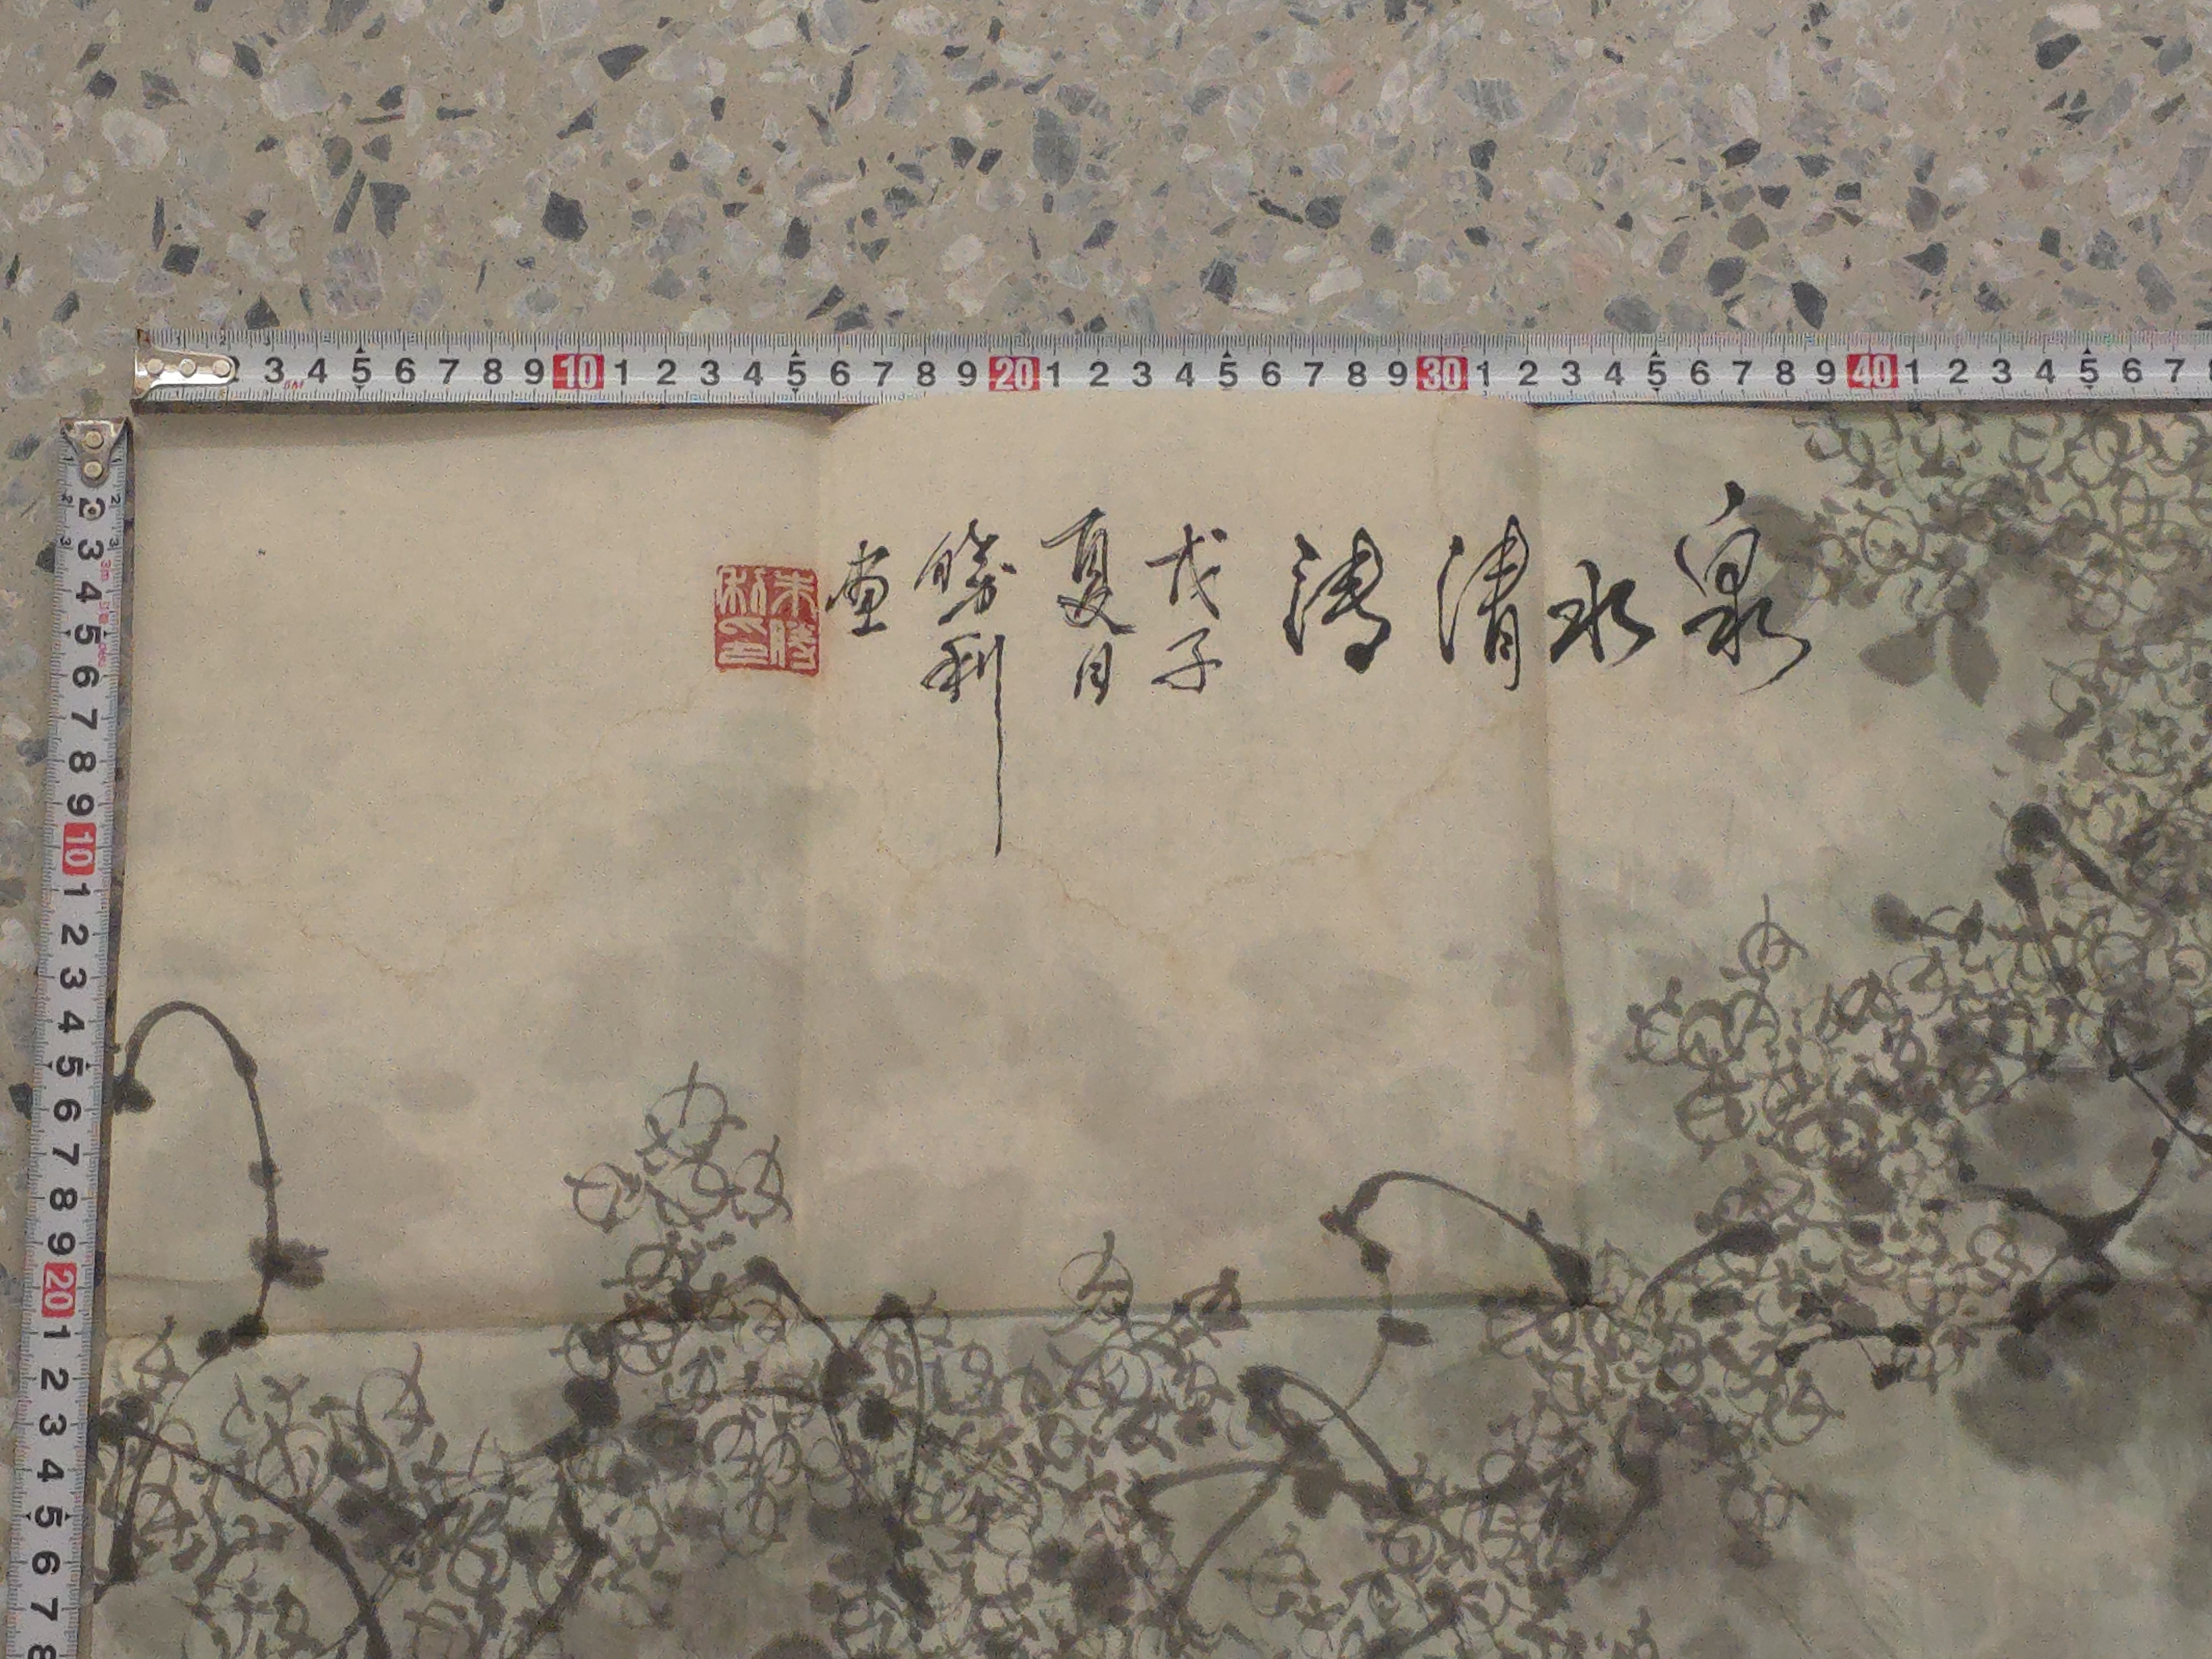 泉水清清
戊子
夏月
勝利
画
朱勝利印
2 3 4 5 6 7 8 9 10 1 2 3 4 5 6 7 8 9 20 1 2 3 4 5 6 7 8 9 30 1 2 3 4 5 6 7 8 9 40 1 2 3 4 5 6 7
2 3 4 5 6 7 8 9 10 1 2 3 4 5 6 7 8 9 20 1 2 3 4 5 6 7 8
3m